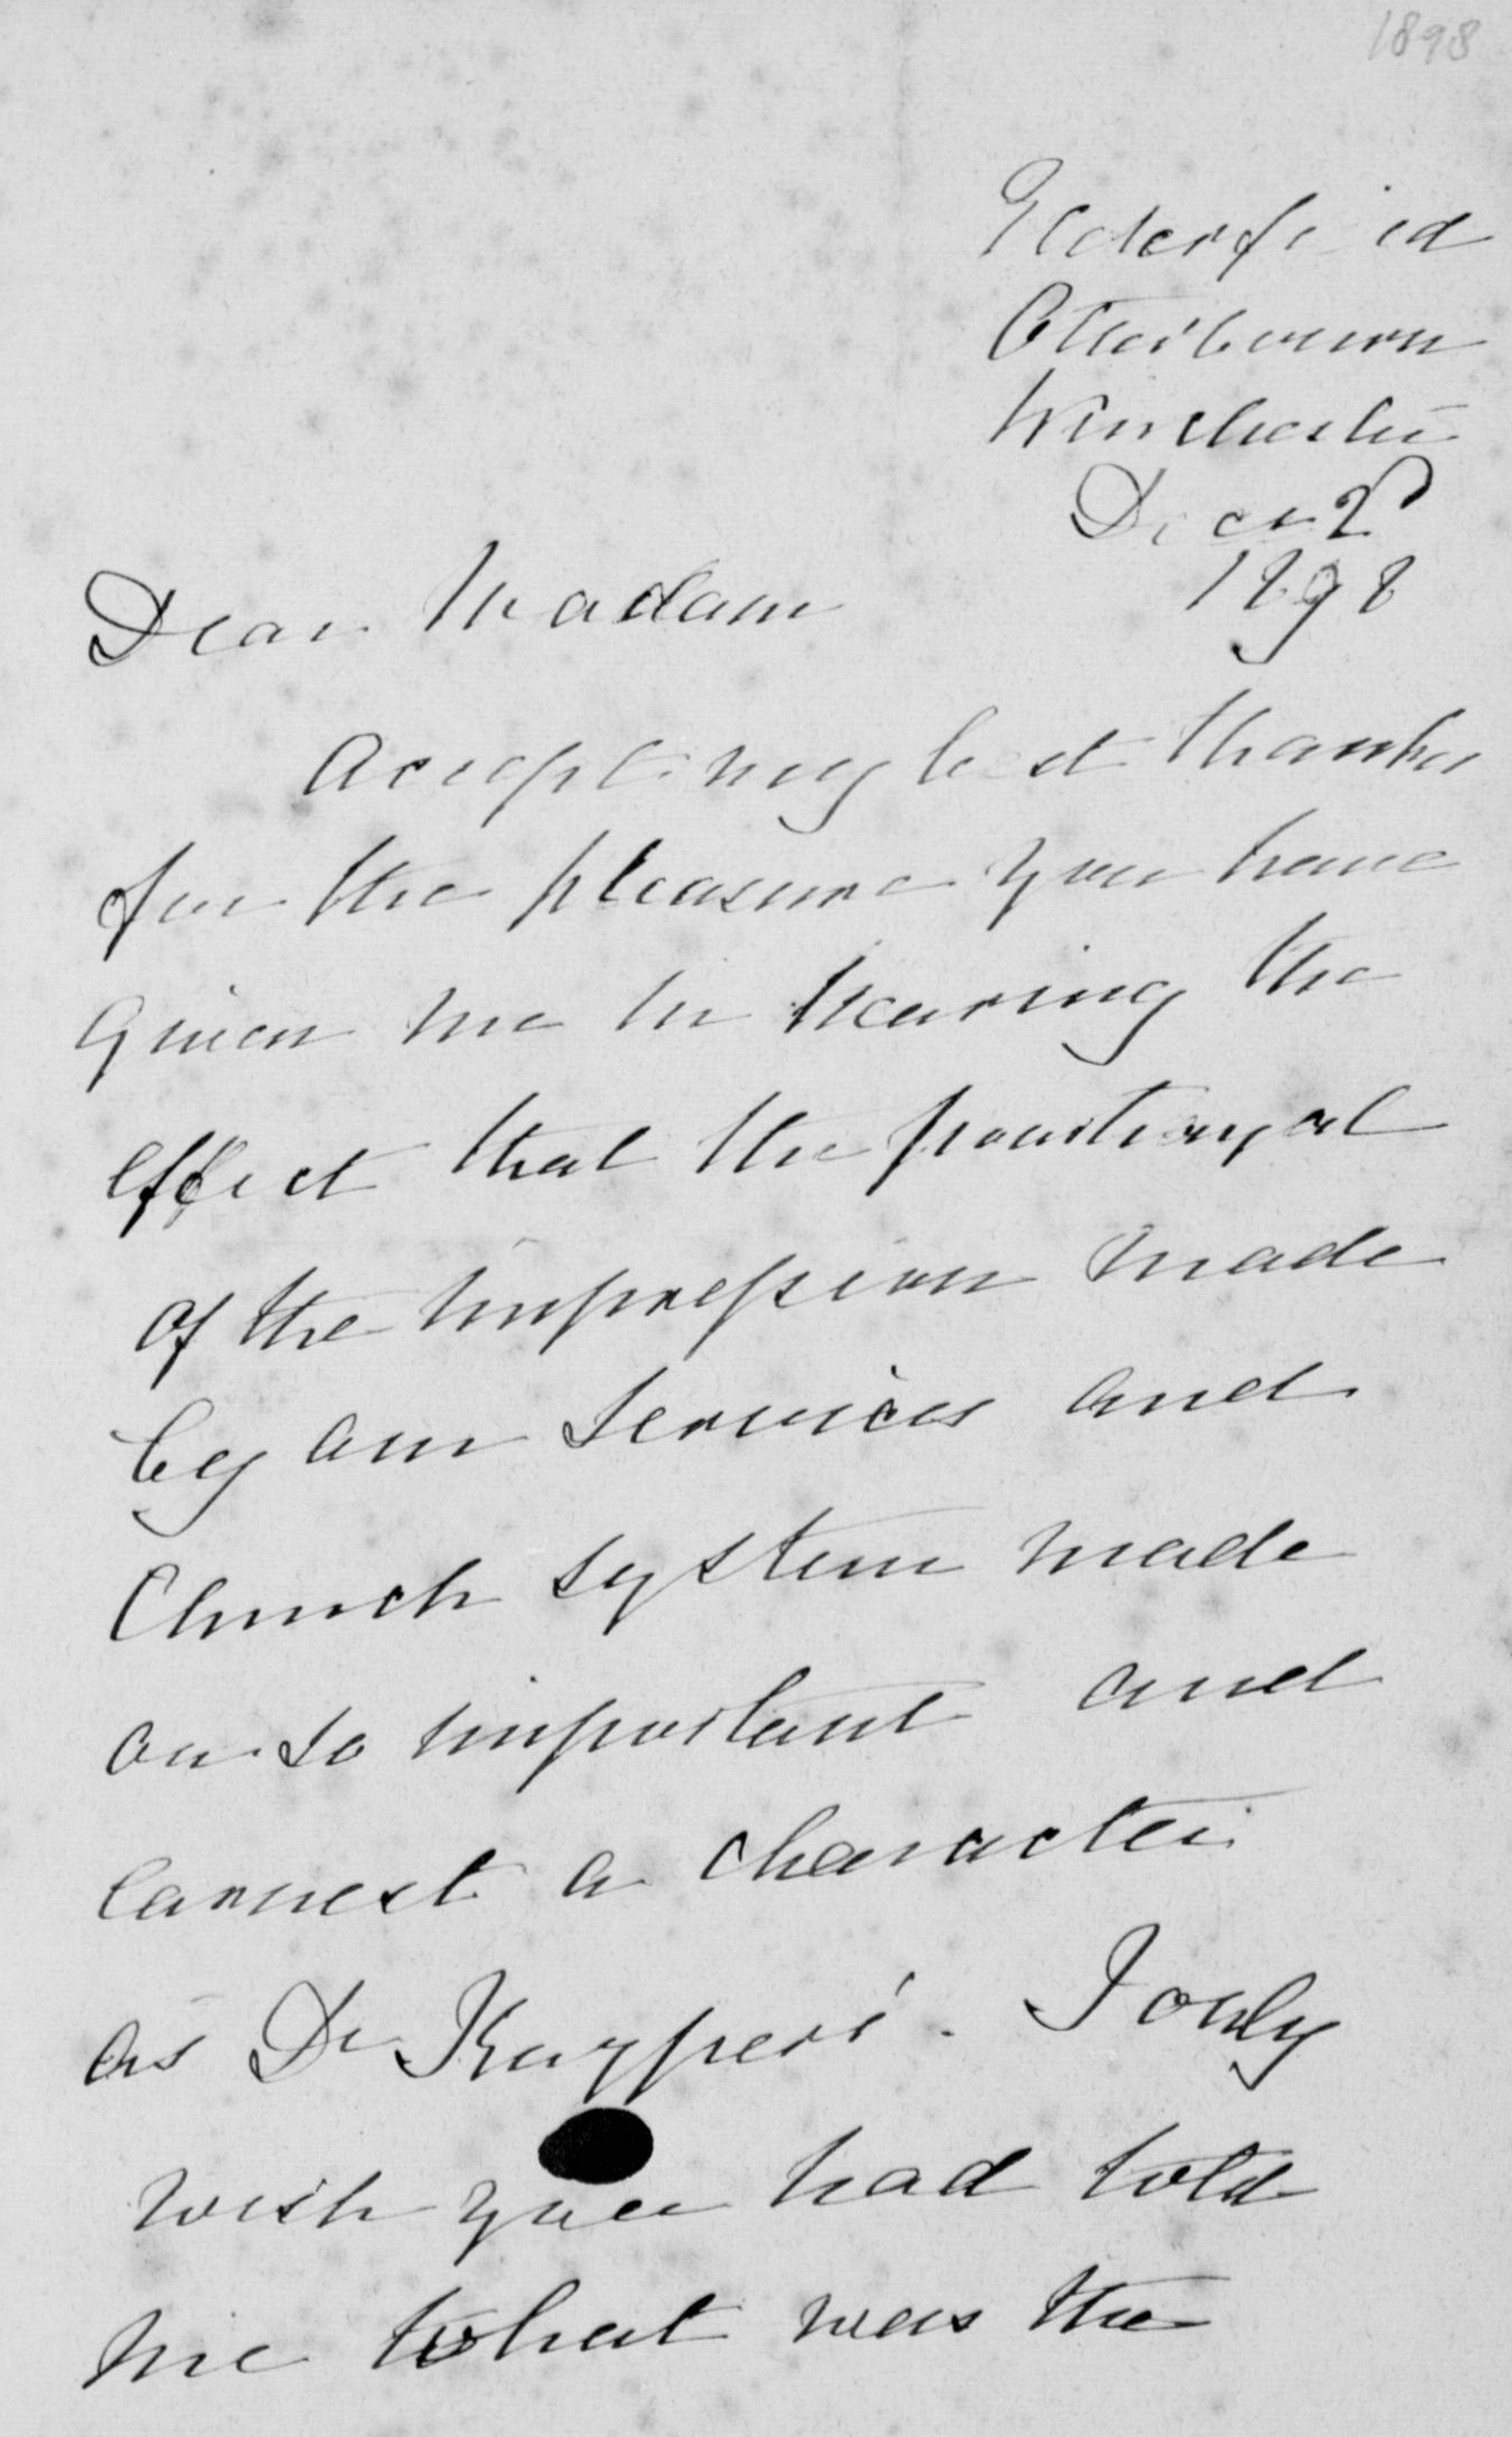 1898
Elderfield
Otterbourn
Winchester
Decr 2d
1898
Dear Madam
Accept my best thanks
for the pleasure you have
given me in hearing the
effect that the pourtrayal
of the impression made
by our Services and
Church system made
on so important and
earnest a character
as Dr Kuypers'. I only
wish you had told
me what was the